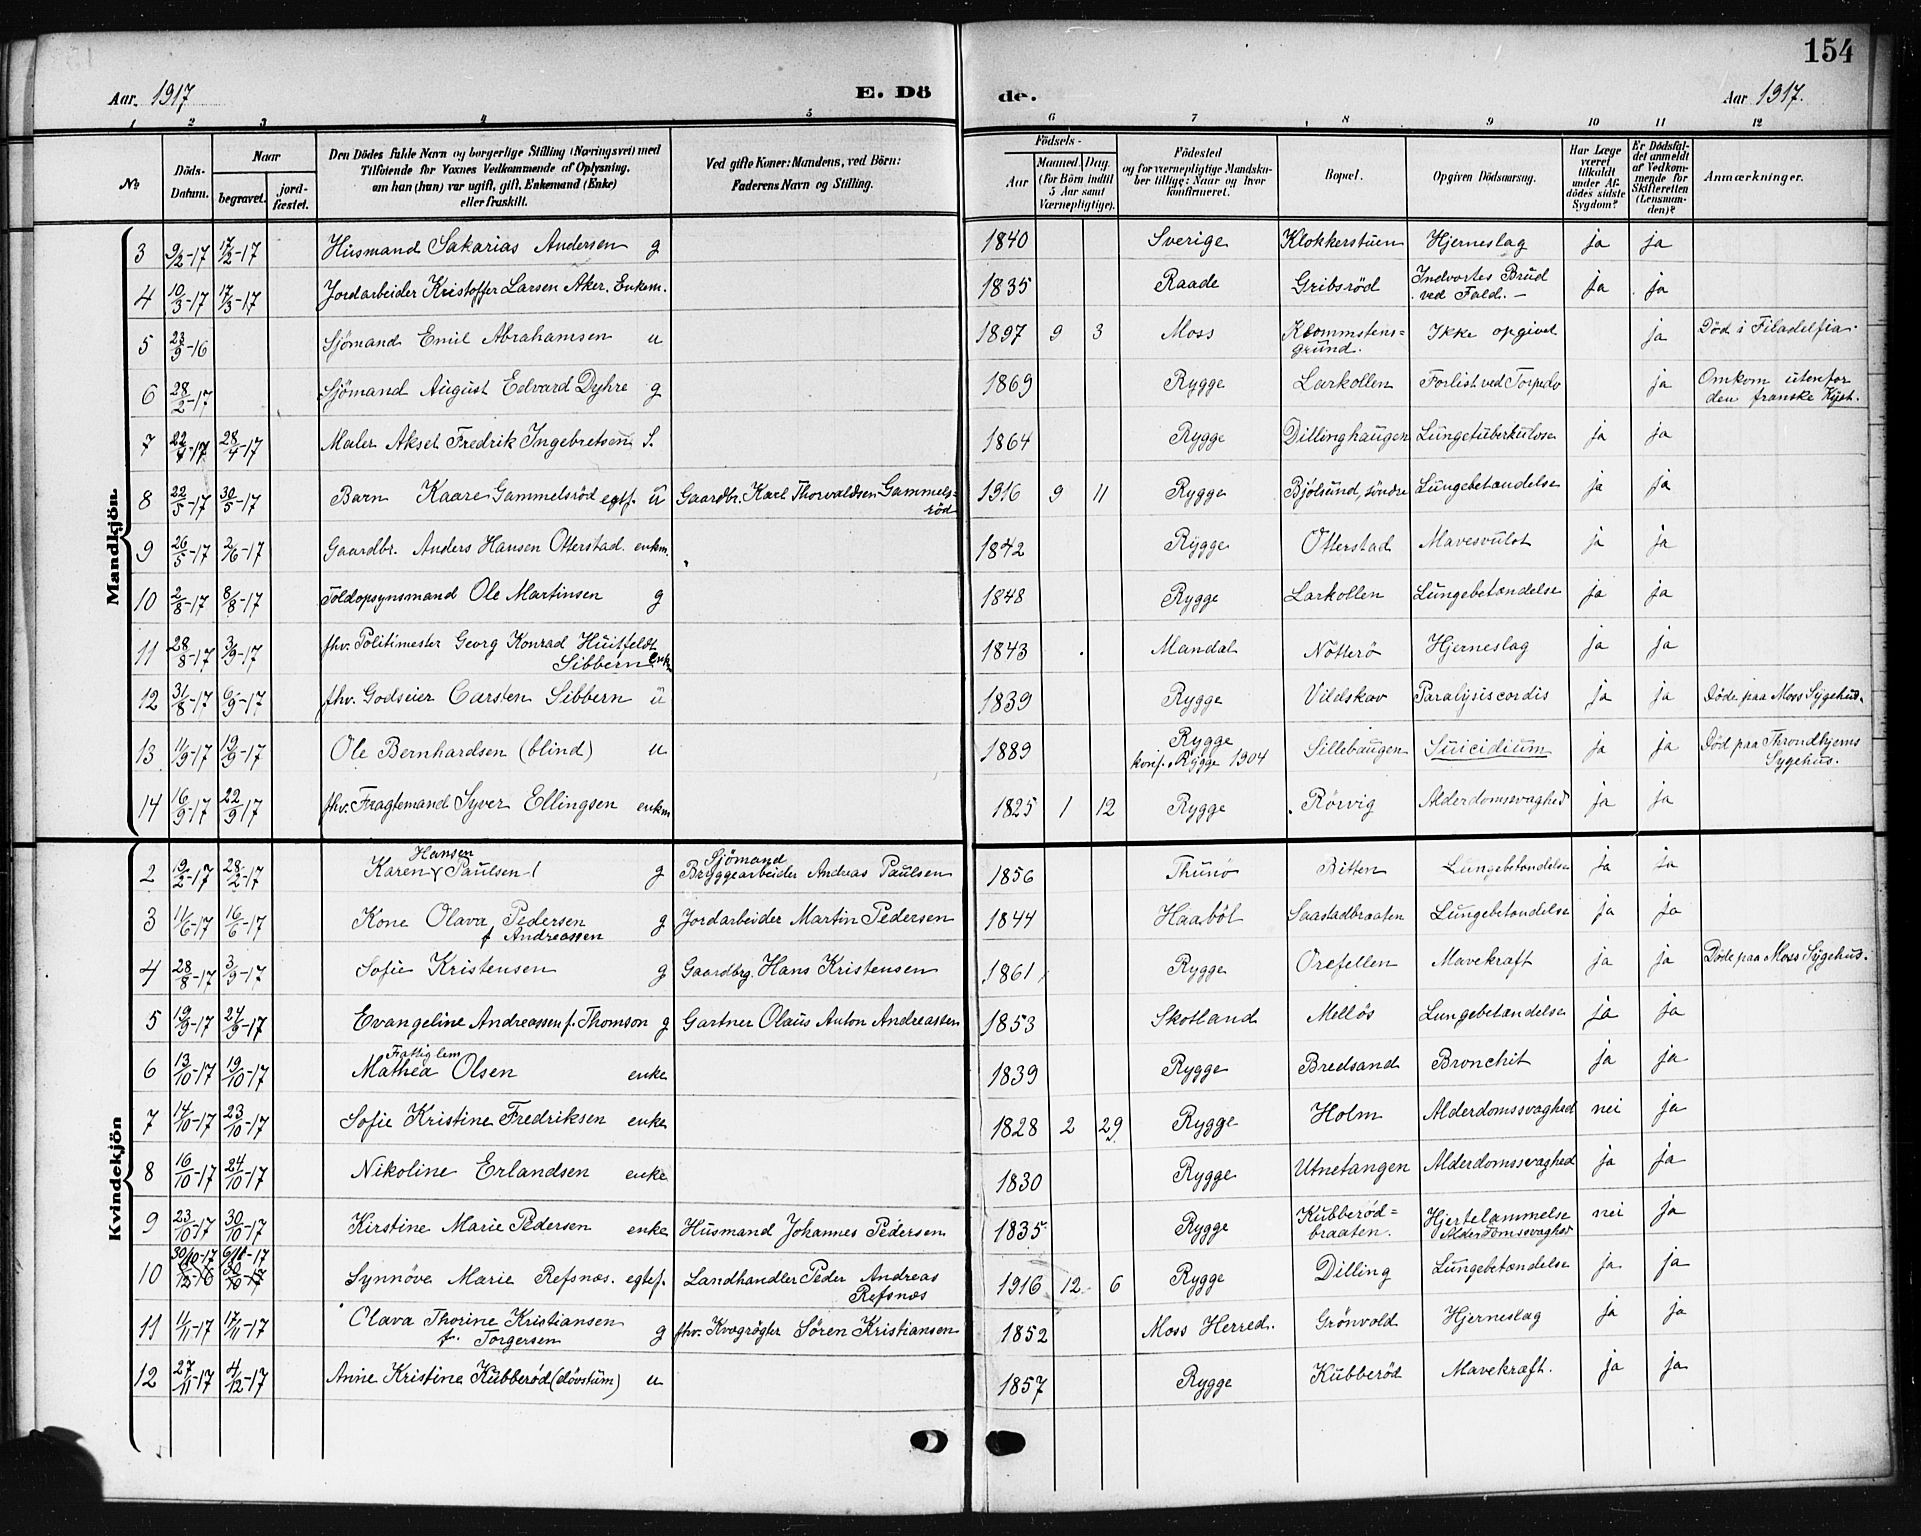 154
Aar. 1917
E. Dö
de.
Aar 1917.
1 2 3 4 5 6 7 8 9 10 11 12
No
Döds-
Datum.
Naar
begravet.
jord-
fæstet.
Den Dödes fulde Navn og borgerlige Stilling (Næringsvei) med
Tilföiende for Voxnes Vedkommende af Oplysning,
om han (hun) var ugift, gift, Enkemand (Enke)
eller fraskilt.
Ved gifte Koner: Mandens, ved Börn:
Faderens Navn og Stilling.
Födsels-
Aar
Maaned. Dag.
(for Börn indtil
5 Aar samt
Værnepligtige).
Födested
og for værnepligtige Mandska-
ber tillige: Naar og hvor
konfirmeret.
Bopæl.
Opgiven Dödsaarsag.
Har Læge
været
tilkaldt
under Af-
dödes sidste
Sygdom?
Er Dödsfal-
det anmeldt
af Vedkom-
mende for
Skifteretten
(Lensman-
den)?
Anmærkninger.
Mandkjön
3 9/2-17 17/2-17 Husmand Sakarias Andersen g 1840 Sverige Klokkerstuen Hjerneslag ja ja
4 10/3-17 17/3-17 Jordarbeider Kristoffer Larsen Aker. Enkem. 1835 Raade Gribsröd Indvortes Brud
ved Fald. - ja ja
5 23/9-16 Sjömand Emil Abrahamsen u 1897 9 3 Moss Klommstens=
grund. Ikke opgivet ja Död i Filadelfia.
6 28/2-17 Sjömand August Edvard Dyhre g 1869 Rygge Larkollen Forlist ved Torpedo ja Omkom utenfor
den franske Kyst.
7 22/4-17 28/4-17 Maler Aksel Fredrik Ingebretsen S. 1864 Rygge Dillinghaugen Lungetuberkulose ja ja
8 22/5-17 30/5-17 Barn Kaare Gammelsröd egtf. u Gaardbr. Karl Thorvaldsen Gammels=
röd 1916 9 11 Rygge Bjölsund, söndre Lungebetændelse ja ja
9 26/5-17 2/6-17 Gaardbr. Anders Hansen Otterstad. enkm. 1842 Rygge Otterstad Mavesvulst ja ja
10 2/8-17 8/8-17 Toldopsynsmand Ole Martinsen g 1848 Rygge Larkollen Lungebetændelse ja ja
11 28/8-17 3/9-17 fhv. Politimester Georg Konrad Huitfeldt
Sibbern enk. 1843 Mandal Nötterö Hjerneslag ja ja
12 31/8-17 6/9-17 fhv. Godseier Carsten Sibbern u 1839 Rygge Vildskov Paralysis cordis ja ja Döde paa Moss Sygehus.
13 11/9-17 19/9-17 Ole Bernhardsen (blind) u 1889 Rygge
konf. Rygge 1904 Sillebaugen Suicidium ja ja Död paa Throndhjems
Sygehus.
14 16/9-17 22/9 17 fhv. Fragtemand Syver Ellingsen enkem 1825 1 12 Rygge Rörvig Alderdomssvaghed ja ja
Kvindekjön
2 19/2-17 28/2-17 Karen Hansen Paulsen g Sjömand
Bryggearbeider Andreas Paulsen 1856 Thunö Bitten Lungebetændelse ja ja
3 11/6-17 16/6-17 Kone Olava Pedersen
f Andreassen g Jordarbeider Martin Pedersen 1844 Haaböl Saastadbraaten Lungebetændelse ja ja
4 28/8-17 3/9-17 Sofie Kristensen g Gaardbrg. Hans Kristensen 1861 Rygge Orefellen Mavekraft ja ja Döde paa Moss Sygehus.
5 19/9-17 24/9-17 Evangeline Andreassen f. Thomson g Gartner Olaus Anton Andreassen 1853 Skotland Mellös Lungebetændelse ja ja
6 13/10-17 19/10-17 Fattiglem
Mathea Olsen enke 1839 Rygge Bredsand Bronchit ja ja
7 14/10-17 23/10-17 Sofie Kristine Fredriksen enke 1828 2 29 Rygge Holm Alderdomssvaghed nei ja
8 16/10-17 24/10-17 Nikoline Erlandsen enke 1830 Rygge Utnetangen Alderdomssvaghed ja ja
9 23/10 17 30/10-17 Kirstine Marie Pedersen enke Husmand Johannes Pedersen 1835 Rygge Kubberöd=
braaten. Hjertelammelse
Alderdomssvaghed nei ja
10 30/10-17 Synnöve Marie Refsnæs. egtef. Landhandler Peder Andreas
Refsnæs 1916 12 6 Rygge Dilling Lungebetændelse ja ja
11 11/11-17 17/11-17 Olava Thorine Kristiansen
f. Torgersen g fhv. Kvægrögter Sören Kristiansen 1852 Moss Herred. Grönvold Hjerneslag ja ja
12 27/11-17 4/12-17 Anne Kristine Kubberöd (dövstum) u 1857 Rygge Kubberöd Mavekræft. ja ja